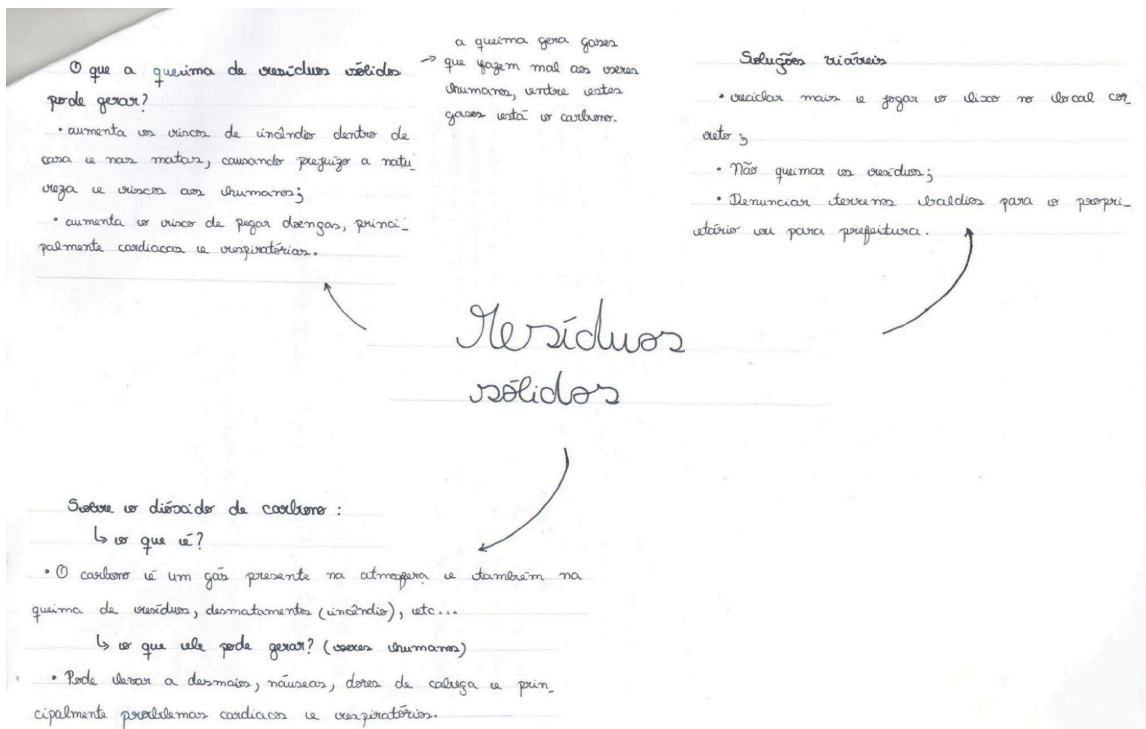 O que a queima de resíduos sólidos
pode gerar?
• aumenta os riscos de incêndio dentro de
casa e nas matas, causando prejuízo a natu_
reza e riscos aos humanos;
• aumenta o risco de pegar doenças, princi_
palmente cardiacas e respiratórias.
→ a queima gera gases
que fazem mal aos seres
humanos, entre estes
gases está o carbono.
Soluções viáveis
• reciclar mais e jogar o lixo no local cor_
reto;
• Não queimar os resíduos;
• Denunciar terrenos baldios para o propri_
etário ou para prefeitura.
Resíduos
sólidos
Sobre o dióxido de carbono:
↳ o que é?
• O carbono é um gás presente na atmosfera e também na
queima de resíduos, desmatamentos (incêndio), etc...
↳ o que ele pode gerar? (seres humanos)
• Pode levar a desmaios, náuseas, dores de cabeça e prin_
cipalmente problemas cardiacos e respiratórios.